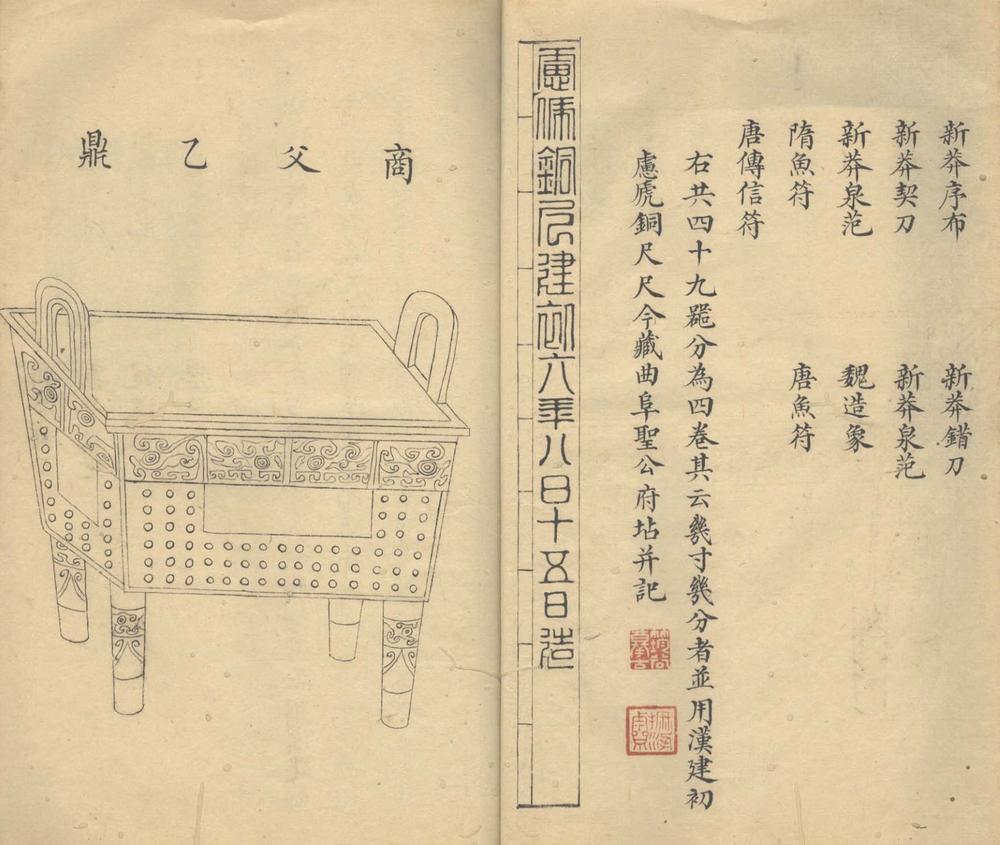 新莽序布
新莽錯刀
新莽契刀
新莽泉范
新莽泉范
魏造象
隋魚符
唐魚符
唐傳信符
右共四十九器分為四卷其云幾寸幾分者並用漢建初
慮虎銅尺尺今藏曲阜聖公府坫并記
慮俿銅尺建初六年八月十五日造
商父乙鼎